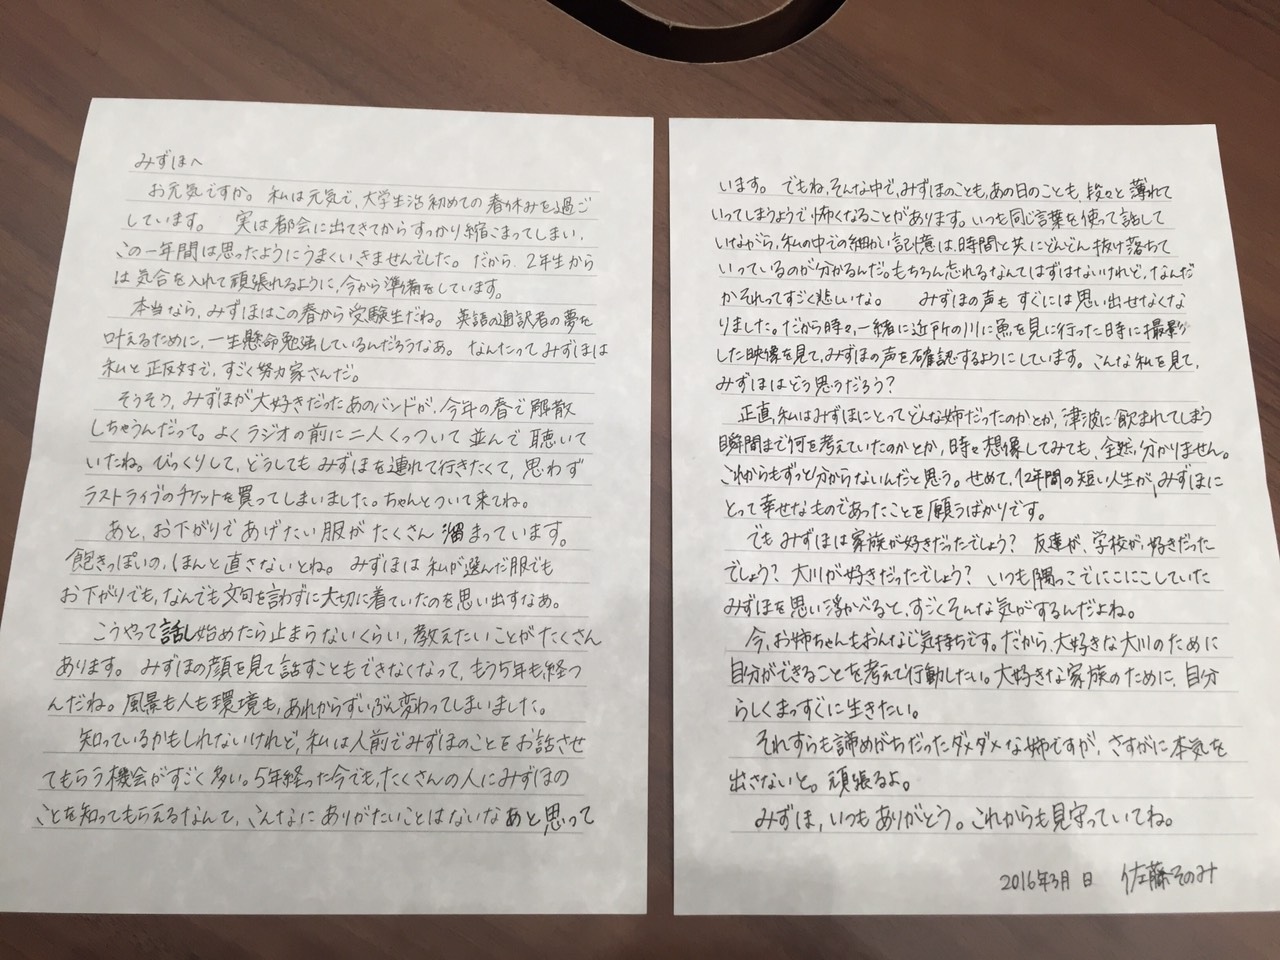 みずほへ
お元気ですか。私は元気で、大学生活初めての春休みを過ご
しています。 実は都会に出てきてからすっかり縮こまってしまい、
この一年間は思ったようにうまくいきませんでした。だから、2年生から
は気合を入れて頑張れるように、今から準備をしています。
本当なら、みずほはこの春から受験生だね。英語の通訳者の夢を
叶えるために、一生懸命勉強しているんだろうなあ。なんたってみずほは
私と正反対で、すごく努力家さんだ。
そうそう、みずほが大好きだったあのバンドが、今年の春で解散
しちゃうんだって。よくラジオの前に二人くっついて並んで聴いて
いたね。びっくりして、どうしてもみずほを連れて行きたくて、思わず
ラストライブのチケットを買ってしまいました。ちゃんとついて来てね。
あと、お下がりであげたい服がたくさん溜まっています。
飽きっぽいの、ほんと直さないとね。みずほは私が選んだ服でも
お下がりでも、なんでも文句を言わずに大切に着ていたのを思い出すなあ。
こうやって話し始めたら止まらないくらい、教えたいことがたくさん
あります。みずほの顔を見て話すこともできなくなって、もう5年も経つ
んだね。風景も人も環境も、あれからずいぶん変わってしまいました。
知っているかもしれないけれど、私は人前でみずほのことをお話させ
てもらう機会がすごく多い。5年経った今でも、たくさんの人にみずほの
ことを知ってもらえるなんて、こんなにありがたいことはないなあと思って
います。でもね、そんな中で、みずほのことも、あの日のことも、段々と薄れて
いってしまうようで怖くなることがあります。いつも同じ言葉を使って話して
いながら、私の中での細かい記憶は、時間と共にどんどん抜け落ちて
いっているのが分かるんだ。もちろん忘れるなんてはずはないけれど、なんだ
かそれってすごく悲しいな。 みずほの声もすぐには思い出せなくな
りました。だから時々、一緒に近所の川に魚を見に行った時に撮影
した映像を見て、みずほの声を確認するようにしています。こんな私を見て、
みずほはどう思うだろう?
正直、私はみずほにとってどんな姉だったのかとか、津波に飲まれてしまう
瞬間まで何を考えていたのかとか、時々想像してみても、全然分かりません。
これからもずっと分からないんだと思う。せめて、12年間の短い人生が、みずほに
とって幸せなものであったことを願うばかりです。
でもみずほは家族が好きだったでしょう? 友達が、学校が、好きだった
でしょう? 大川が好きだったでしょう? いつも隅っこでにこにこしていた
みずほを思い浮かべると、すごくそんな気がするんだよね。
今、お姉ちゃんもおんなじ気持ちです。だから、大好きな大川のために
自分ができることを考えて行動したい。大好きな家族のために、自分
らしくまっすぐに生きたい。
それすらも諦めがちだったダメダメな姉ですが、さすがに本気を
出さないと。頑張るよ。
みずほ、いつもありがとう。これからも見守っていてね。
2016年3月 日 佐藤そのみ